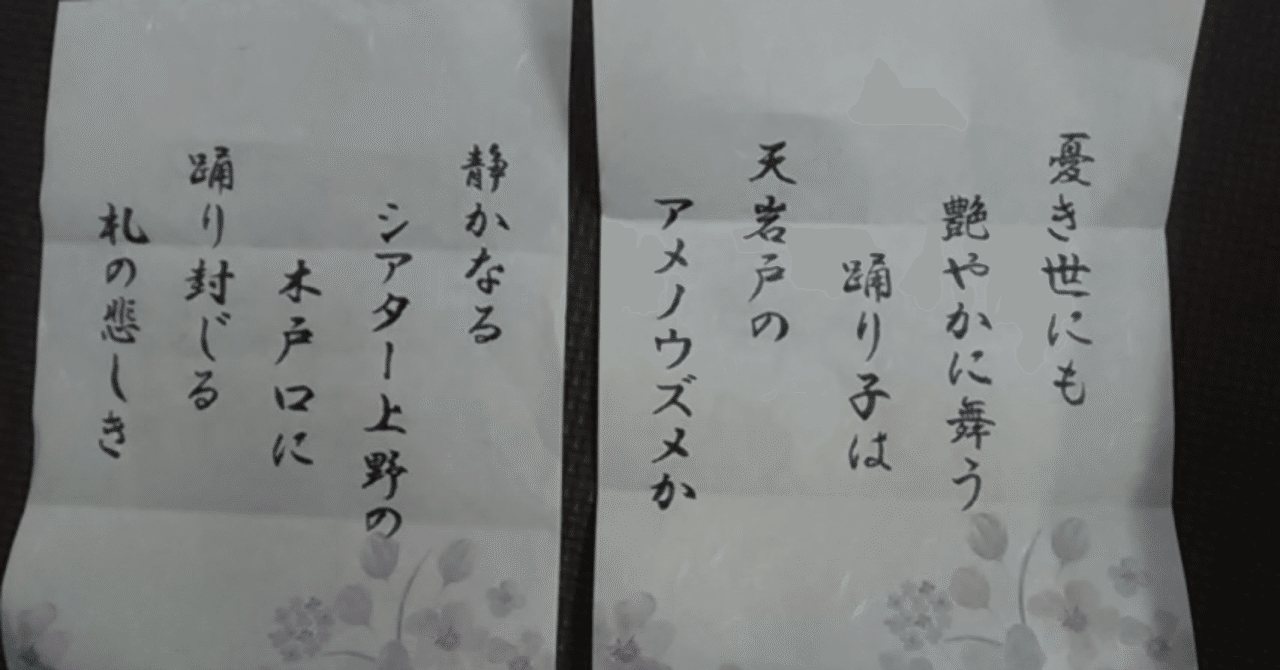 憂き世にも
艶やかに舞う
踊り子は
天岩戸の
アメノウズメか
静かなる
シアター上野の
木戸口に
踊り封じる
札の悲しき